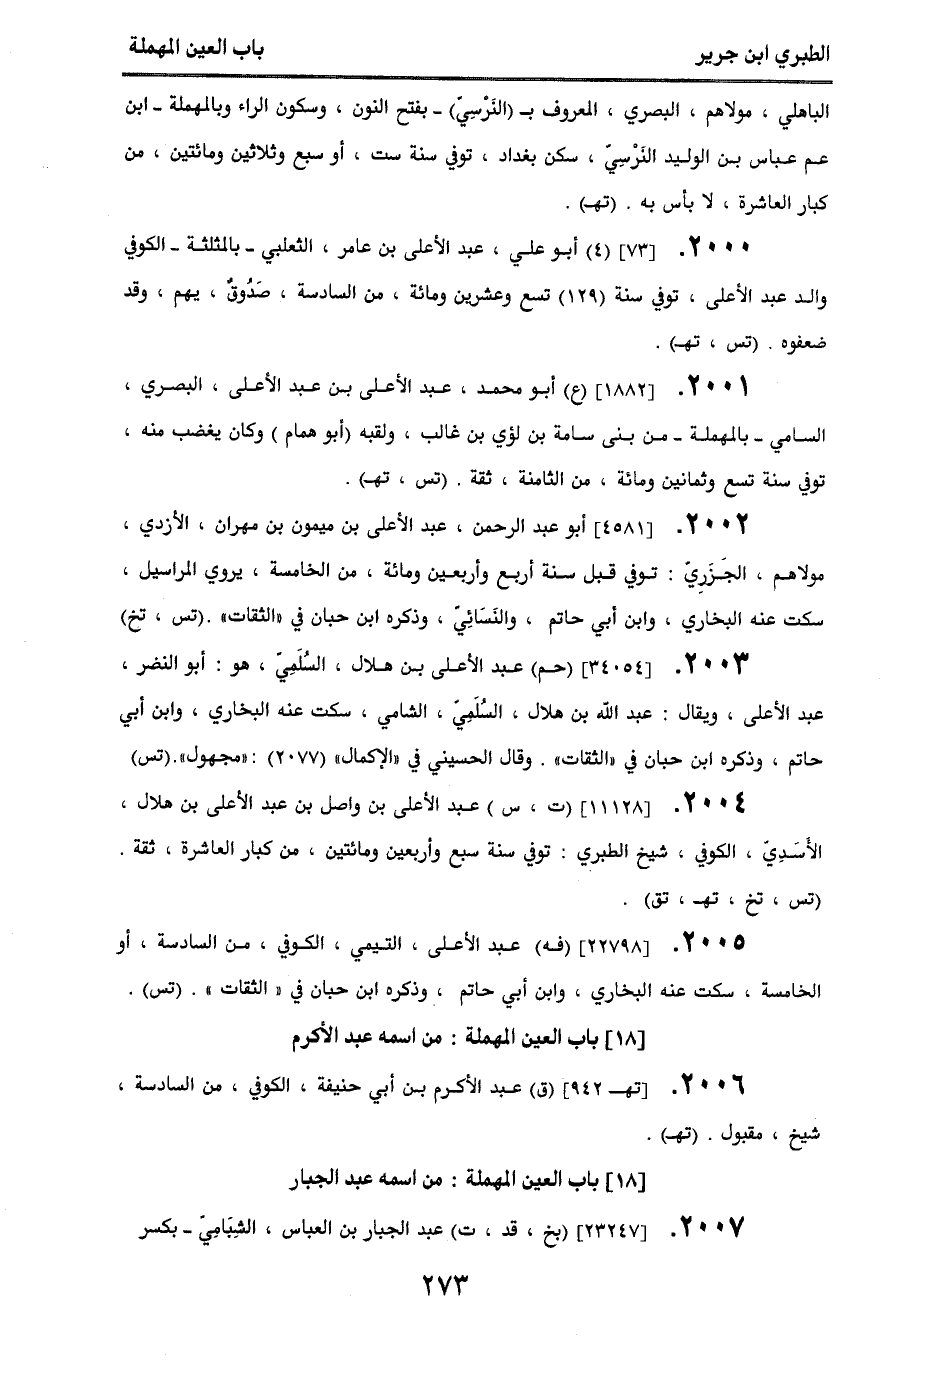 الطبري ابن جرير
باب العين المهملة
الباهلي ، مولاهم ، البصري ، المعروف بـ (النَرْسِيّ) ـ بفتح النون ، وسكون الراء وبالمهملة ـ ابن
عم عباس بن الوليد النَرْسِيّ ، سكن بغداد ، توفي سنة ست ، أو سبع وثلاثين ومائتين ، من
كبار العاشرة ، لا بأس به . (تهـ) .
٢٠٠٠. [٧٣] (٤) أبو علي ، عبد الأعلى بن عامر ، الثعلبي ـ بالمثلثة ـ الكوفي
والد عبد الأعلى ، توفي سنة (١٢٩) تسع وعشرين ومائة ، من السادسة ، صَدُوقٌ ، يهم ، وقد
ضعفوه . (تس ، تهـ) .
٢٠٠١. [١٨٨٢] (ع) أبو محمد ، عبد الأعلى بن عبد الأعلى ، البصري ،
السامي ـ بالمهملة ـ من بنى سامة بن لؤي بن غالب ، ولقبه (أبو همام ) وكان يغضب منه ،
توفي سنة تسع وثمانين ومائة ، من الثامنة ، ثقة . (تس ، تهـ) .
٢٠٠٢. [٤٥٨١] أبو عبد الرحمن ، عبد الأعلى بن ميمون بن مهران ، الأزدي ،
مولاهم ، الجَزَرِيّ : توفي قبل سنة أربع وأربعين ومائة ، من الخامسة ، يروي المراسيل ،
سكت عنه البخاري ، وابن أبي حاتم ، والنَسَائِيّ ، وذكره ابن حبان في «الثقات» .(تس ، تخ)
٢٠٠٣. [٣٤٠٥٤] (حم) عبد الأعلى بن هلال ، السُلَمِيّ ، هو : أبو النضر ،
عبد الأعلى ، ويقال : عبد الله بن هلال ، السُلَمِيّ ، الشامي ، سكت عنه البخاري ، وابن أبي
حاتم ، وذكره ابن حبان في «الثقات» . وقال الحسيني في «الإكمال» (٢٠٧٧) :«مجهول».(تس)
٢٠٠٤. [١١١٢٨] (ت ، س ) عبد الأعلى بن واصل بن عبد الأعلى بن هلال ،
الأَسَدِيّ ، الكوفي ، شيخ الطبري : توفي سنة سبع وأربعين ومائتين ، من كبار العاشرة ، ثقة .
(تس ، تخ ، تهـ ، تق) .
٢٠٠٥. [٢٢٧٩٨] (فه) عبد الأعلى ، التيمي ، الكوفي ، من السادسة ، أو
الخامسة ، سكت عنه البخاري ، وابن أبي حاتم ، وذكره ابن حبان في « الثقات » . (تس) .
[١٨] باب العين المهملة : من اسمه عبد الأكرم
٢٠٠٦. [تهـ ٩٤٢] (ق) عبد الأكرم بن أبي حنيفة ، الكوفي ، من السادسة ،
شيخ ، مقبول . (تهـ) .
[١٨] باب العين المهملة : من اسمه عبد الجبار
٢٠٠٧. [٢٣٢٤٧] (بخ ، قد ، ت) عبد الجبار بن العباس ، الشِبَامِيّ ـ بكسر
٢٧٣